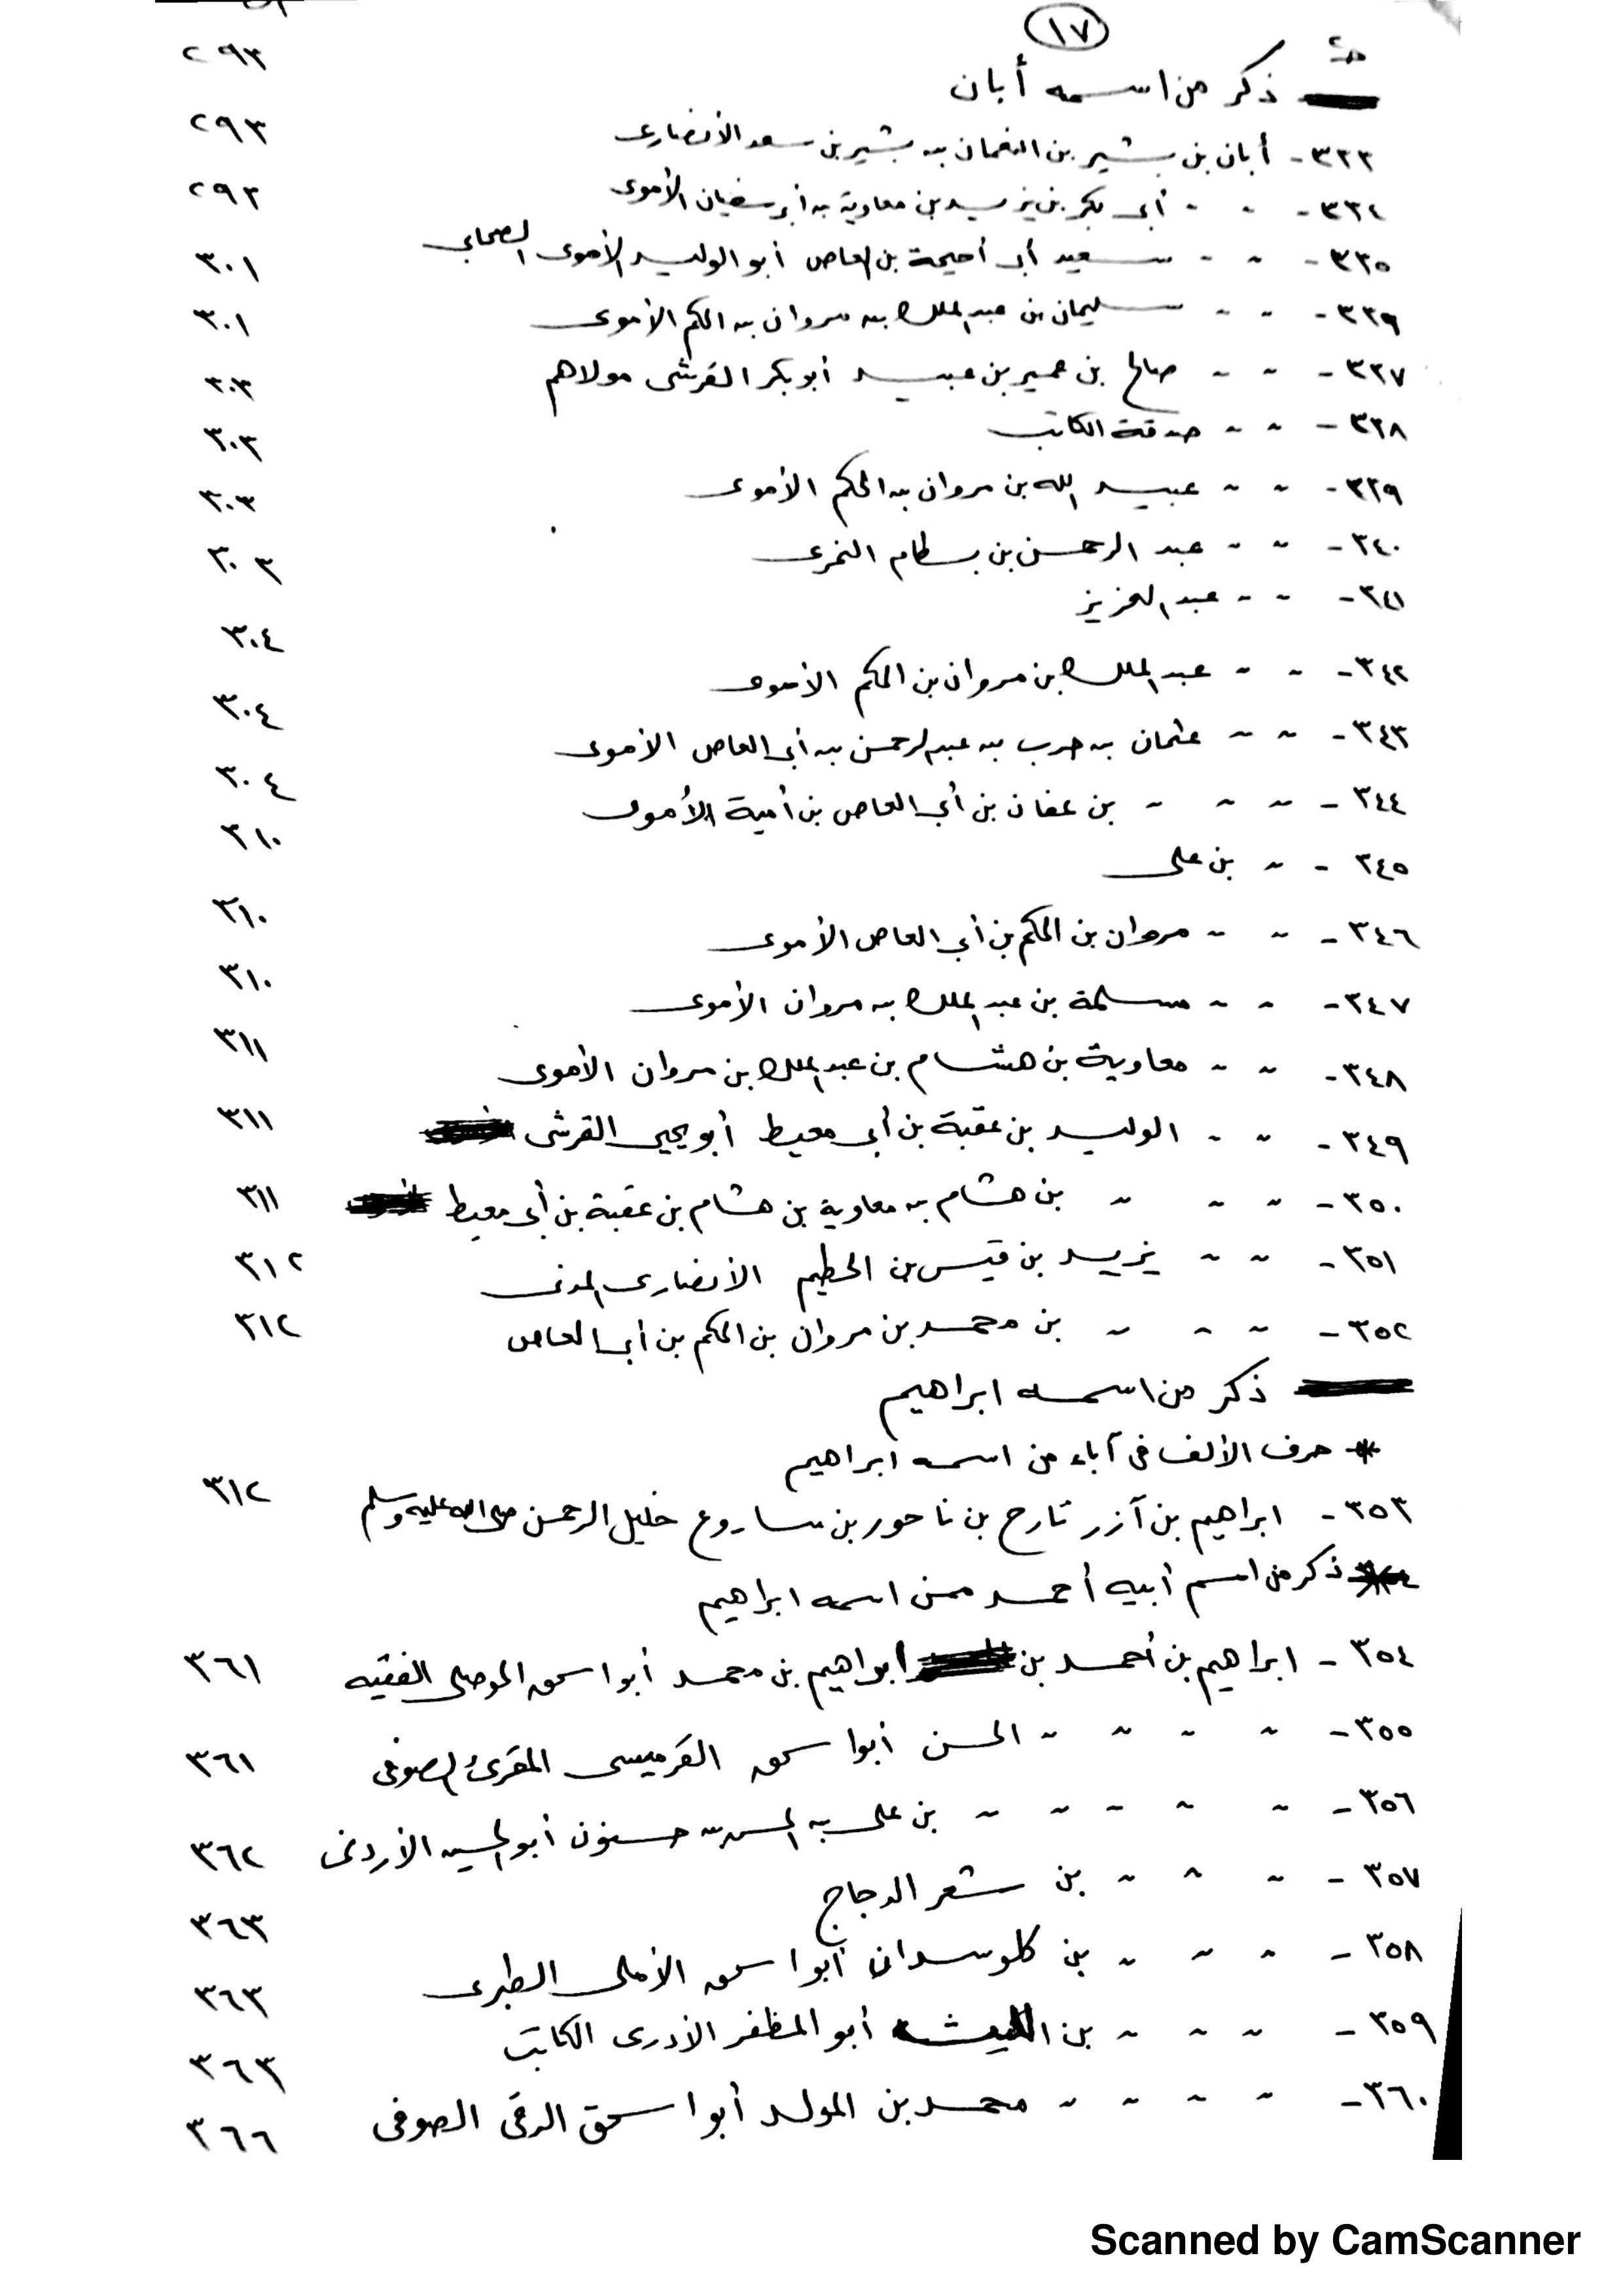 ١٧
ذكر من اسمه أبان ٢٩٣
٣٣٣- أبان بن بشير بن النعمان بن بشير بن سعد الأنصارى ٢٩٣
٣٣٤- " " أبى بكر بن يزيد بن معاوية بن أبى سفيان الأموى ٢٩٣
٣٣٥- " " سعيد أبى أحيحة بن العاص أبو الوليد الأموى الصحابى ٣٠١
٣٣٦- " " سليمان بن عبد الملك بن مروان بن الحكم الأموى ٣٠١
٣٣٧- " " صالح بن عمير بن عبيد أبو بكر القرشى مولاهم ٣٠٣
٣٣٨- " " صدقة الكاتب ٣٠٣
٣٣٩- " " عبيد الله بن مروان بن الحكم الأموى ٣٠٣
٣٤٠- " " عبد الرحمن بن بسطام النمرى ٣٠٣
٣٤١- " " عبد العزيز ٣٠٤
٣٤٢- " " عبد الملك بن مروان بن الحكم الأموى ٣٠٤
٣٤٣- " " عثمان بن حرب بن عبد الرحمن بن أبى العاص الأموى ٣٠٤
٣٤٤- " " " بن عفان بن أبى العاص بن أمية الأموى ٣١٠
٣٤٥- " بن على
٣٤٦- " " مروان بن الحكم بن أبى العاص الأموى ٣١٠
٣٤٧- " " مسلمة بن عبد الملك بن مروان الأموى ٣١٠
٣٤٨- " " معاوية بن هشام بن عبد الملك بن مروان الأموى ٣١١
٣٤٩- " " الوليد بن عقبة بن أبى معيط أبو يحيى القرشى ٣١١
٣٥٠- " " " " بن هشام بن معاوية بن هشام بن عقبة بن أبى معيط ٣١١
٣٥١- " " يزيد بن قيس بن الخطيم الأنصارى المدنى ٣١٢
٣٥٢- " " " بن محمد بن مروان بن الحكم بن أبى العاص ٣١٢
ذكر من اسمه ابراهيم
* حرف الألف فى آباء من اسمه ابراهيم
٣٥٣- ابراهيم بن آزر تارح بن ناحور بن ساروع خليل الرحمن صلى الله عليه وسلم ٣١٢
* ذكر من اسم أبيه أحمد ممن اسمه ابراهيم
٣٥٤- ابراهيم بن أحمد بن ابراهيم بن محمد أبو اسحق الموصلى الفقيه ٣٦١
٣٥٥- " " " " الحسن أبو اسحق القرميسى المقرئ الصوفى ٣٦١
٣٥٦- " " " " " بن على بن الحسن بن حسنون أبو الحسين الأزدى ٣٦٢
٣٥٧- " " " بن شعر الدجاج ٣٦٣
٣٥٨- " " " بن كلوسدان أبو اسحق الأملى الطبرى ٣٦٣
٣٥٩- " " " بن الليث أبو المظفر الأزدى الكاتب ٣٦٣
٣٦٠- " " " " محمد بن المولد أبو اسحق الرقى الصوفى ٣٦٦
Scanned by CamScanner